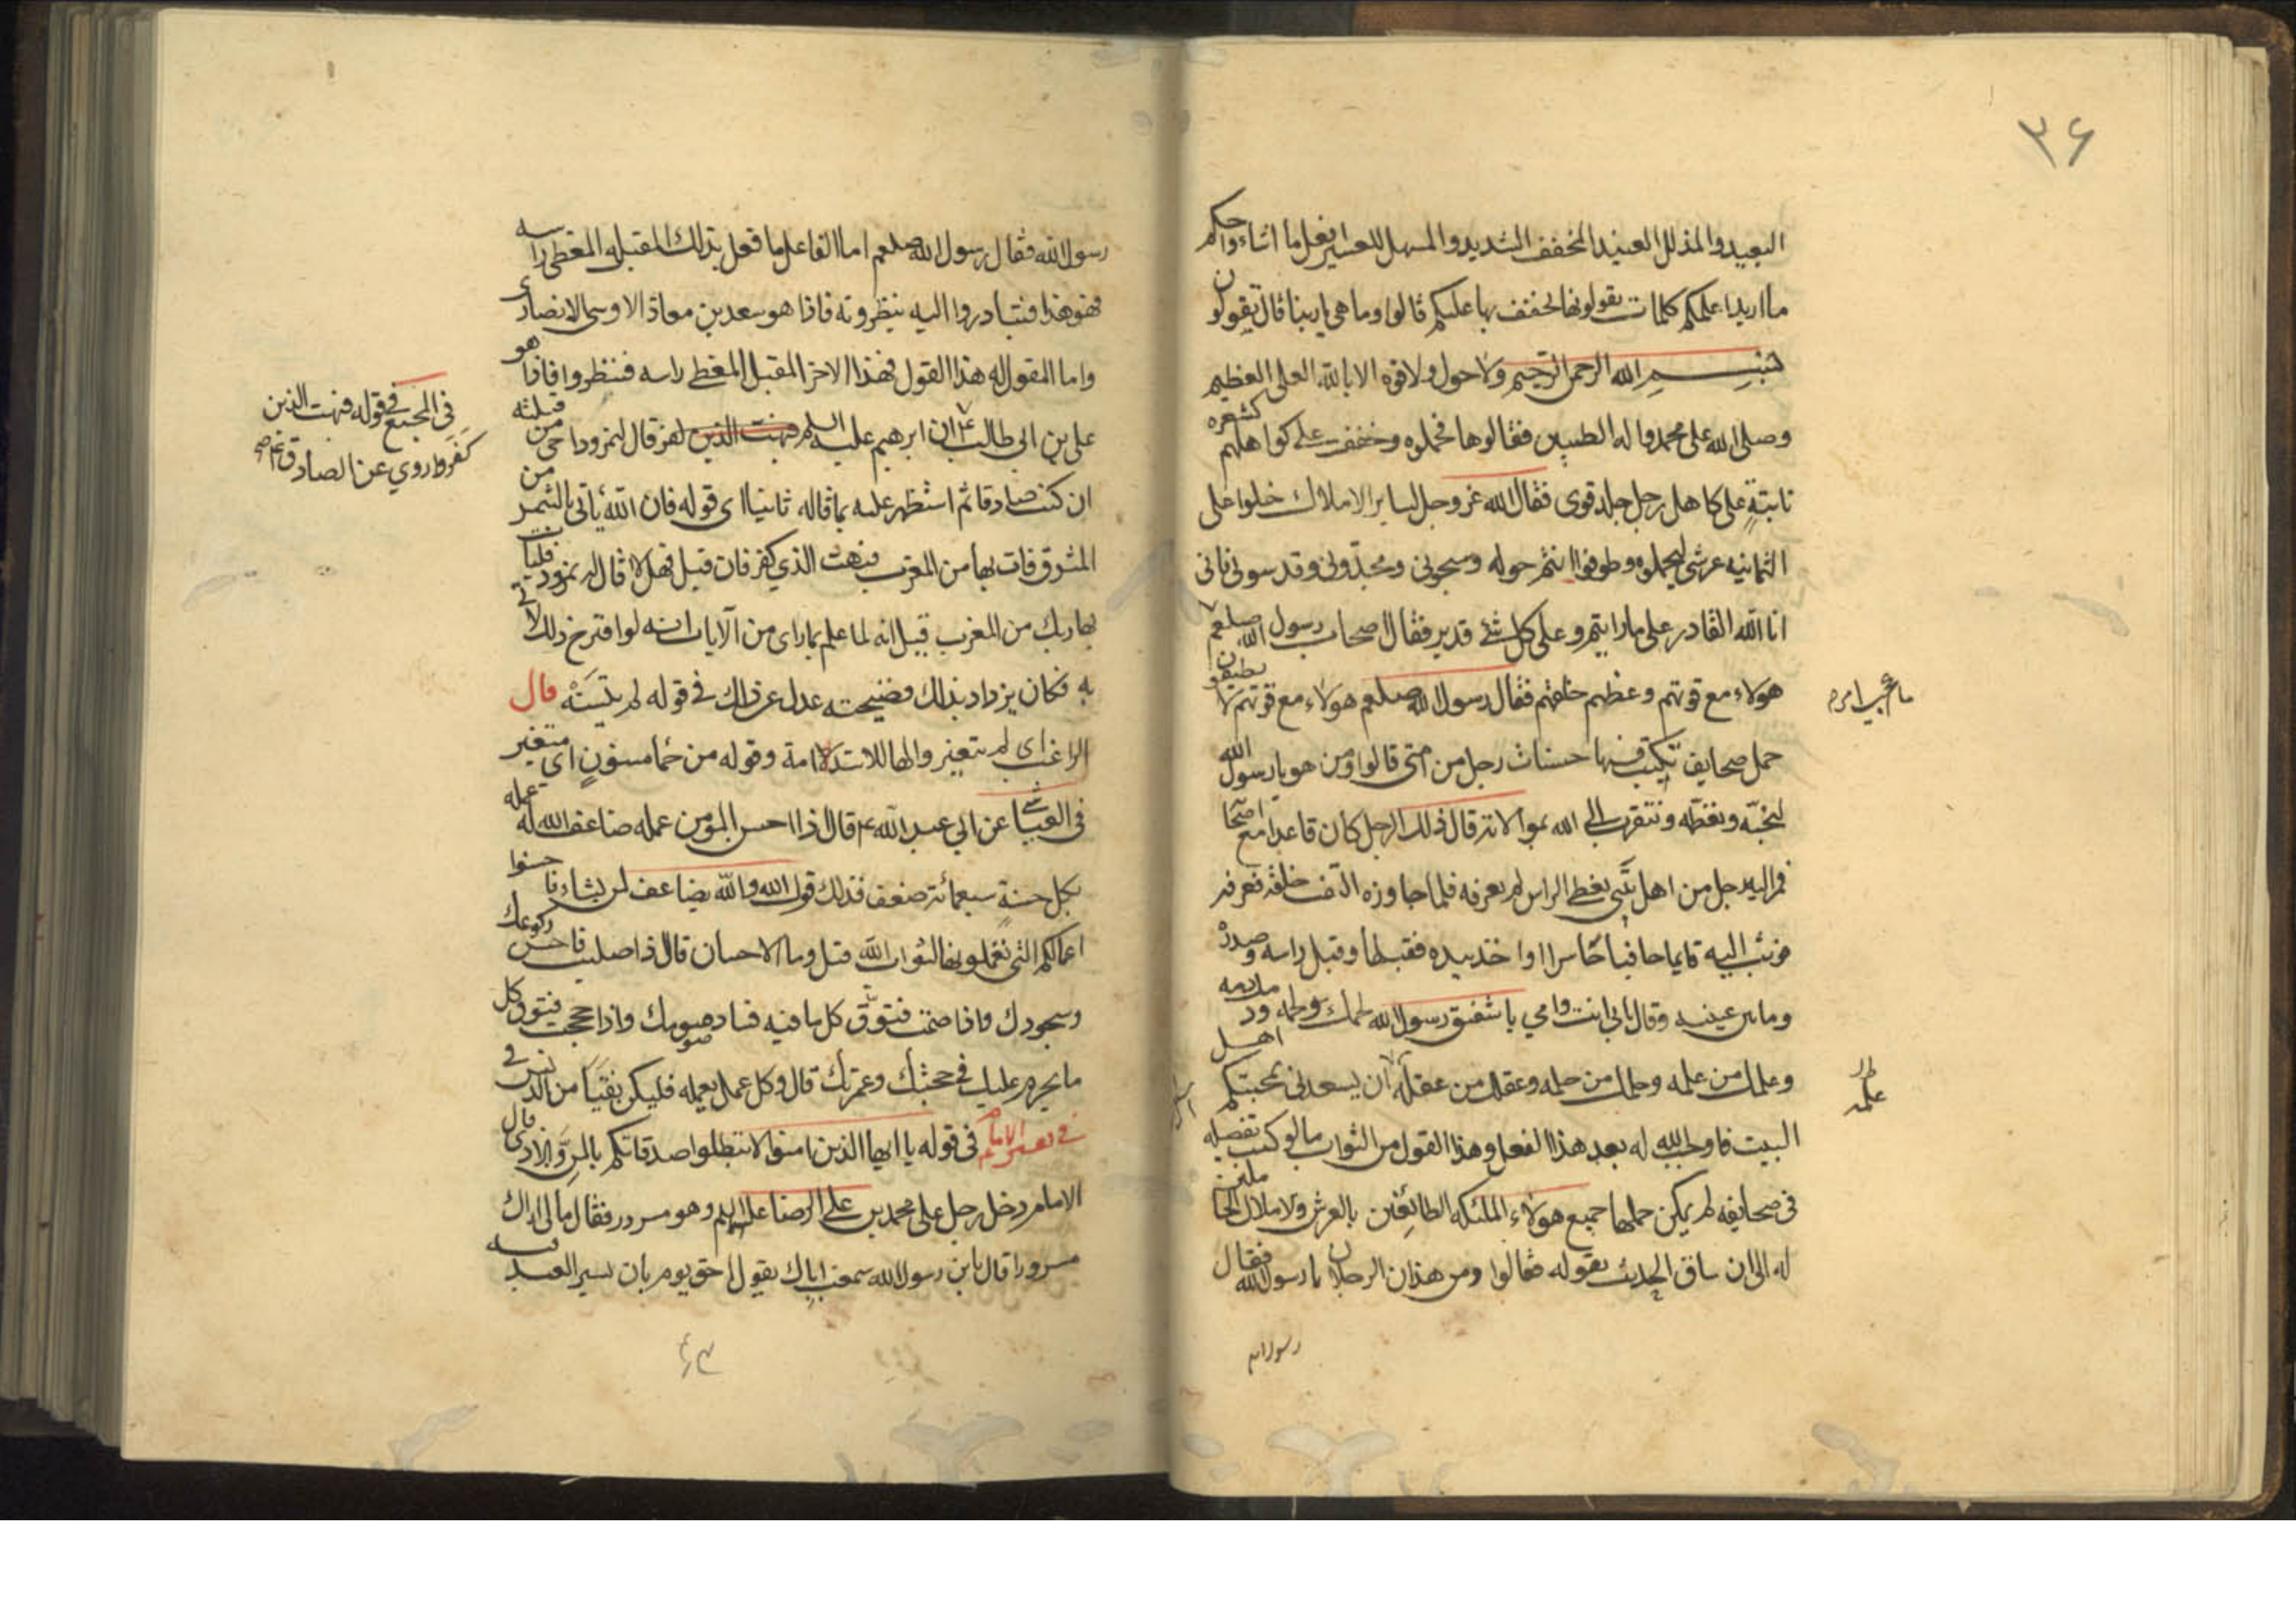 ٣٦
البعيد والمذلل العنيد المخفف الشديد والمسهل للعسير افعل ما اشاء واحكم
ما اريد اعلمكم كلمات تقولونها يخفف بها عليكم قالوا وما هي يا ربنا قال تقولون
بسم الله الرحمن الرحيم ولا حول ولا قوه الا بالله العلي العظيم
وصلى الله على محمد واله الطيبين فقالوها فحملوه وخففت على كواهلهم كشعره
نابتة على كاهل رجل جلد قوى فقال الله عز وجل لساير الاملاك خلوا على
الثمانيه عرشي ليحملوه وطوفوا انتم حوله وسبحوني ومجدوني وقدسوني فاني
انا الله القادر على ما رايتم وعلى كل شئ قدير فقال اصحاب رسول الله صلعم
ما عجب امر
هولاء مع قوتهم وعظم خلقهم فقال رسول الله صلعم هولاء مع قوتهم لا يطيقون
حمل صحايف تكتب فيها حسنات رجل من امتى قالوا ومن هو يا رسول الله
لنحبّه ونعظّمه ونتقرب الى الله بموالاته قال ذلك الرجل كان قاعدا مع اصحا
فمر اليه رجل من اهل بيتي مغطى الراس لم يعرفه فلما جاوزه التفت خلفه فعرفه
فوثب اليه قايما حافيا حاسرا واخذ بيده فقبلها وقبل راسه وصدره
وما بين عينيه وقال بابي انت وامي يا شقيق رسول الله لحمك لحمه ودمك دمه
وعلمك من علمه وحلمك من حلمه وعقلك من عقله ان يسعدني بمحبتكم اهل
علمه
البيت فاوجب الله له بعد هذا الفعل وهذا القول من الثواب ما لو كتب تفصيله
في صحايفه لم يكن حملها جميع هولاء الملئكه الطائفين بالعرش والاملاك الحاملين
له الى ان ساق الحديث بقوله فقالوا ومن هذان الرجلان يا رسول الله فقال
رسول الله
رسول الله فقال رسول الله صلعم اما الفاعل ما فعل بذلك المقبل المغطى راسه
فهو هذا فتبادروا اليه ينظرونه فاذا هو سعد بن معاذ الاوسى الانصارى
واما المقول له هذا القول فهذا الاخر المقبل المغطى راسه فنظروا فاذا هو
في المجمع في قوله فبهت الذين
كفروا روي عن الصادق
على بن ابى طالب ع ان ابرهيم عليه السلم فبهت الذين كفر قال لنمرود احى من قتلته
ان كنت صادقا ثم استظهر عليه بما قاله ثانيا اى قوله فان الله ياتى بالشمس من
المشرق فات بها من المغرب فبهت الذي كفر فان قيل فهلا قال له نمرود فليات
بها ربك من المغرب قيل انه لما علم بما راى من الآيات انه لو اقترح ذلك لاتى
به فكان يزداد بذلك فضيحته عدل عن ذلك في قوله لم يتسنّه قال
الراغب اى لم يتغير والهاء للاستدامة وقوله من حمأ مسنون اى متغير
في العياشي عن ابي عبد الله ع قال اذا احسن المؤمن عمله ضاعف الله له عمله
بكل حسنة سبعمائة ضعف فذلك قول الله والله يضاعف لمن يشاء فاحسنوا
اعمالكم التى تعملونها لثواب الله قيل وما الاحسان قال اذا صليت فاحسن ركوعك
وسجودك واذا صمت فتوق كل ما فيه فساد صومك واذا حججت فتوق كل
ما يحرم عليك في حجتك وعمرتك قال وكل عمل يعمله فليكن نقيّا من الدنس في
في تفسير الامام في قوله يا ايها الذين امنوا لا تبطلوا صدقاتكم بالمن والاذى قال
الامام دخل رجل على محمد بن على الرضا عليه السلم وهو مسرور فقال مالى اراك
مسرورا قال يابن رسول الله سمعت اباك يقول احق يوم بان يسر العبد